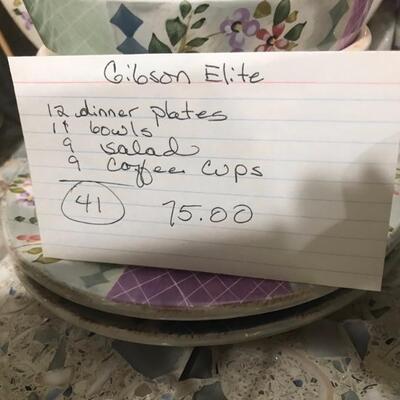 Gibson Elite
12 dinner plates
11 bowls
9 salad
9 coffee cups
41
75.00